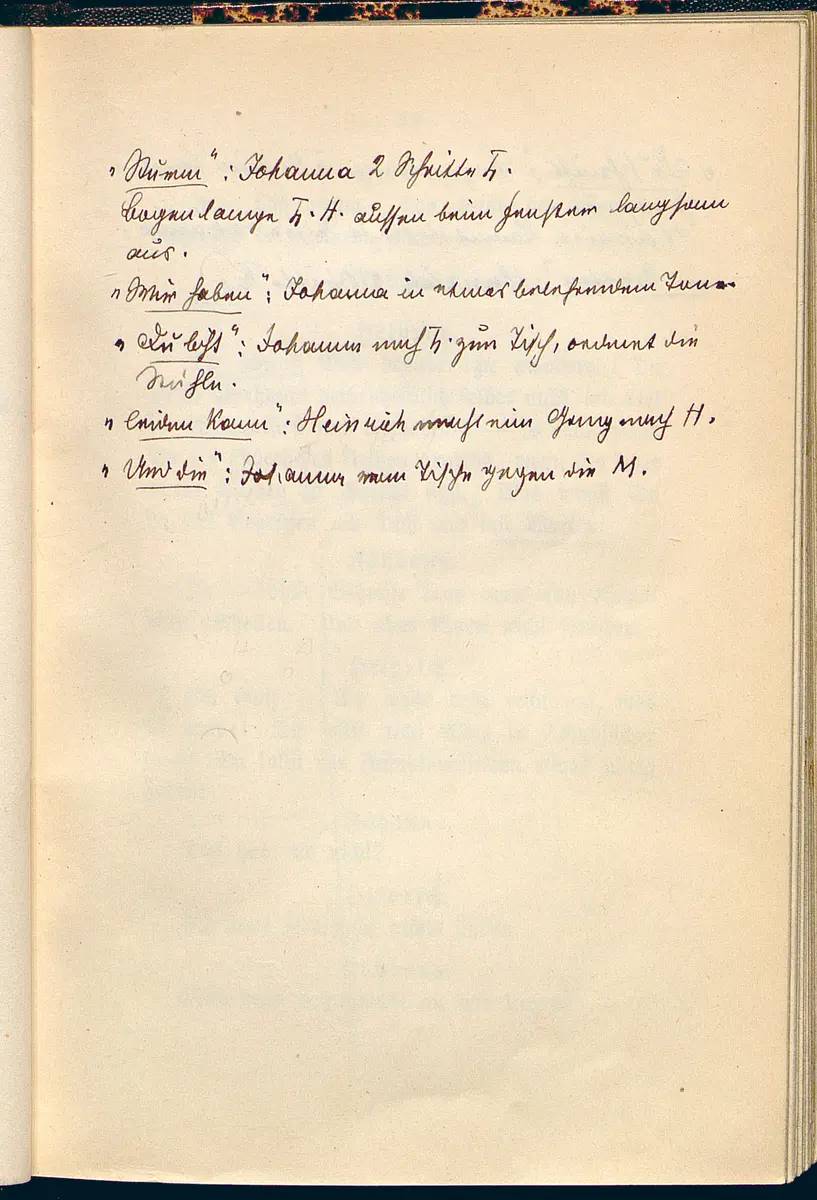 „Sturm": Johanna 2 Schritte h.
Bogenlampe h. H. aussen beim Fenster langsam
aus.
„Wir haben": Johanna in etwas belehrendem Tone.
„Du bist": Johanna nach h. zum Tisch, ordnet die
Stühle.
„leiden kann": Heinrich macht ein Gang nach H.
„Und die": Johanna vom Tische gegen die M.